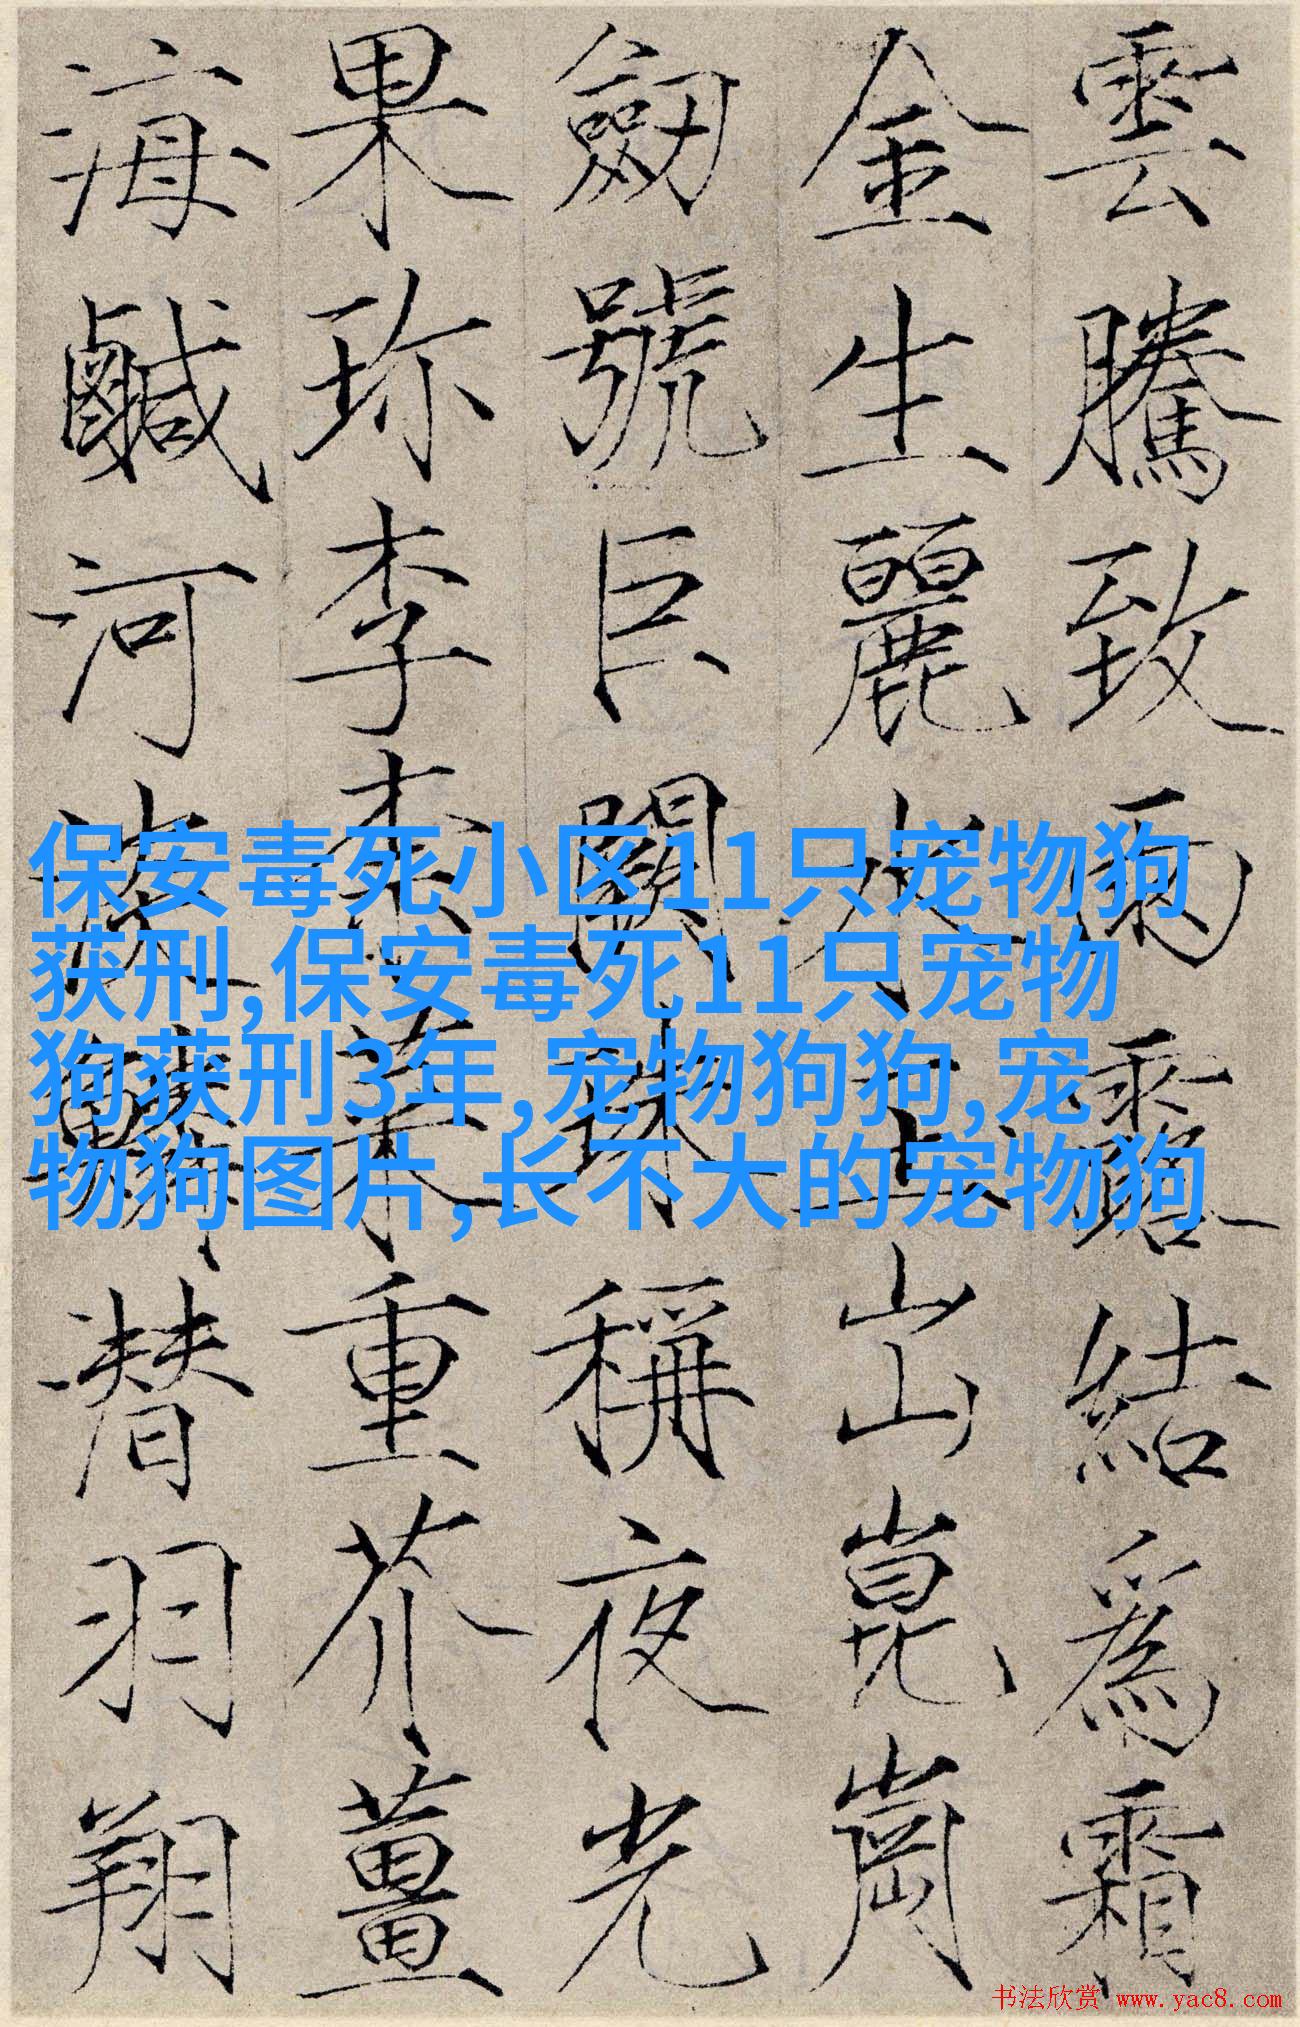 雲騰致雨露結爲霜
金生麗水玉出崑崗
劒號巨闕珠稱夜光
果珎李柰菜重芥薑
海鹹河淡鱗潜羽翔
保安毒死小区11只宠物狗
获刑,保安毒死11只宠物
狗获刑3年,宠物狗狗,宠
物狗图片,长不大的宠物狗
书法欣赏 www.yac8.com